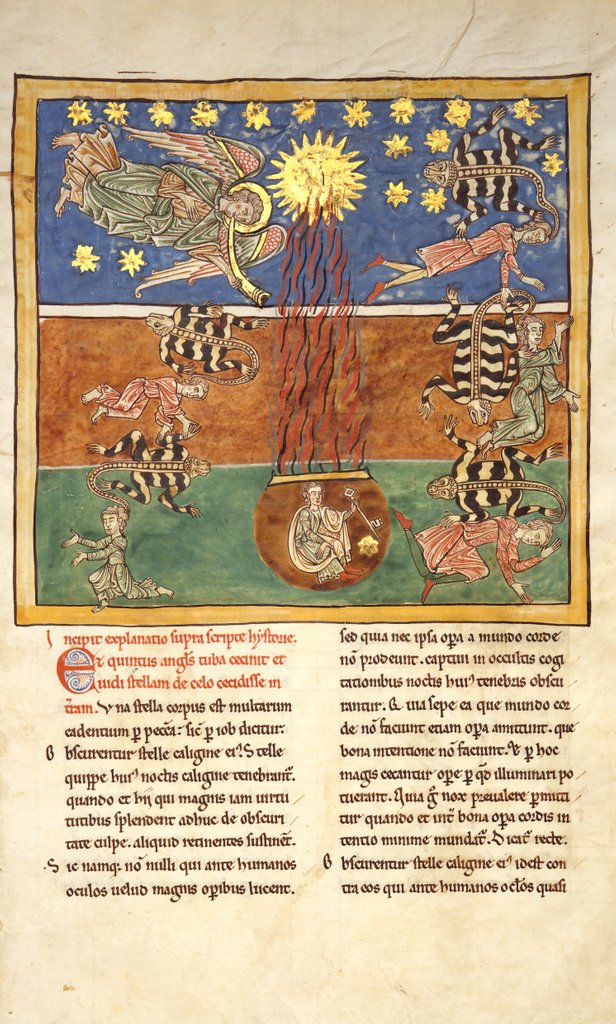 Incipit explanatio supra scripte hystorie.
Et quintus angls tuba cecinit et
uidi stellam de celo cecidisse in
tram. Una stella corpus est multarum
cadentium p peccta: sic p iob dicitur.
Obscurentur stelle caligine ei? Stelle
quippe hui' noctis caligine tenebrant.
quando et hii qui magnis iam uirtu
tutibus splendent adhuc de obscuri
tate culpe. aliquid retinentes sustinet.
Sic namq; no nulli qui ante humanos
oculos uelud magnis opibus lucent.
sed quia nec ipsa opa a mundo corde
no prodeunt. captiui in occultis cogi
tationibus noctis hui' tenebris obscu
rantur. Qui sepe ea que mundo cor
de no faciunt etiam opa amittunt. que
bona intentione no faciunt. Et p hoc
magis cecantur ope p qd illuminari po
tuerant. Quia g nox preualere pmitti
tur quando et int bona opa cordis in
tentio minime mundat. Dicat recte.
Obscurentur stelle caligine ei' idest con
tra eos qui ante humanos oclos quasi